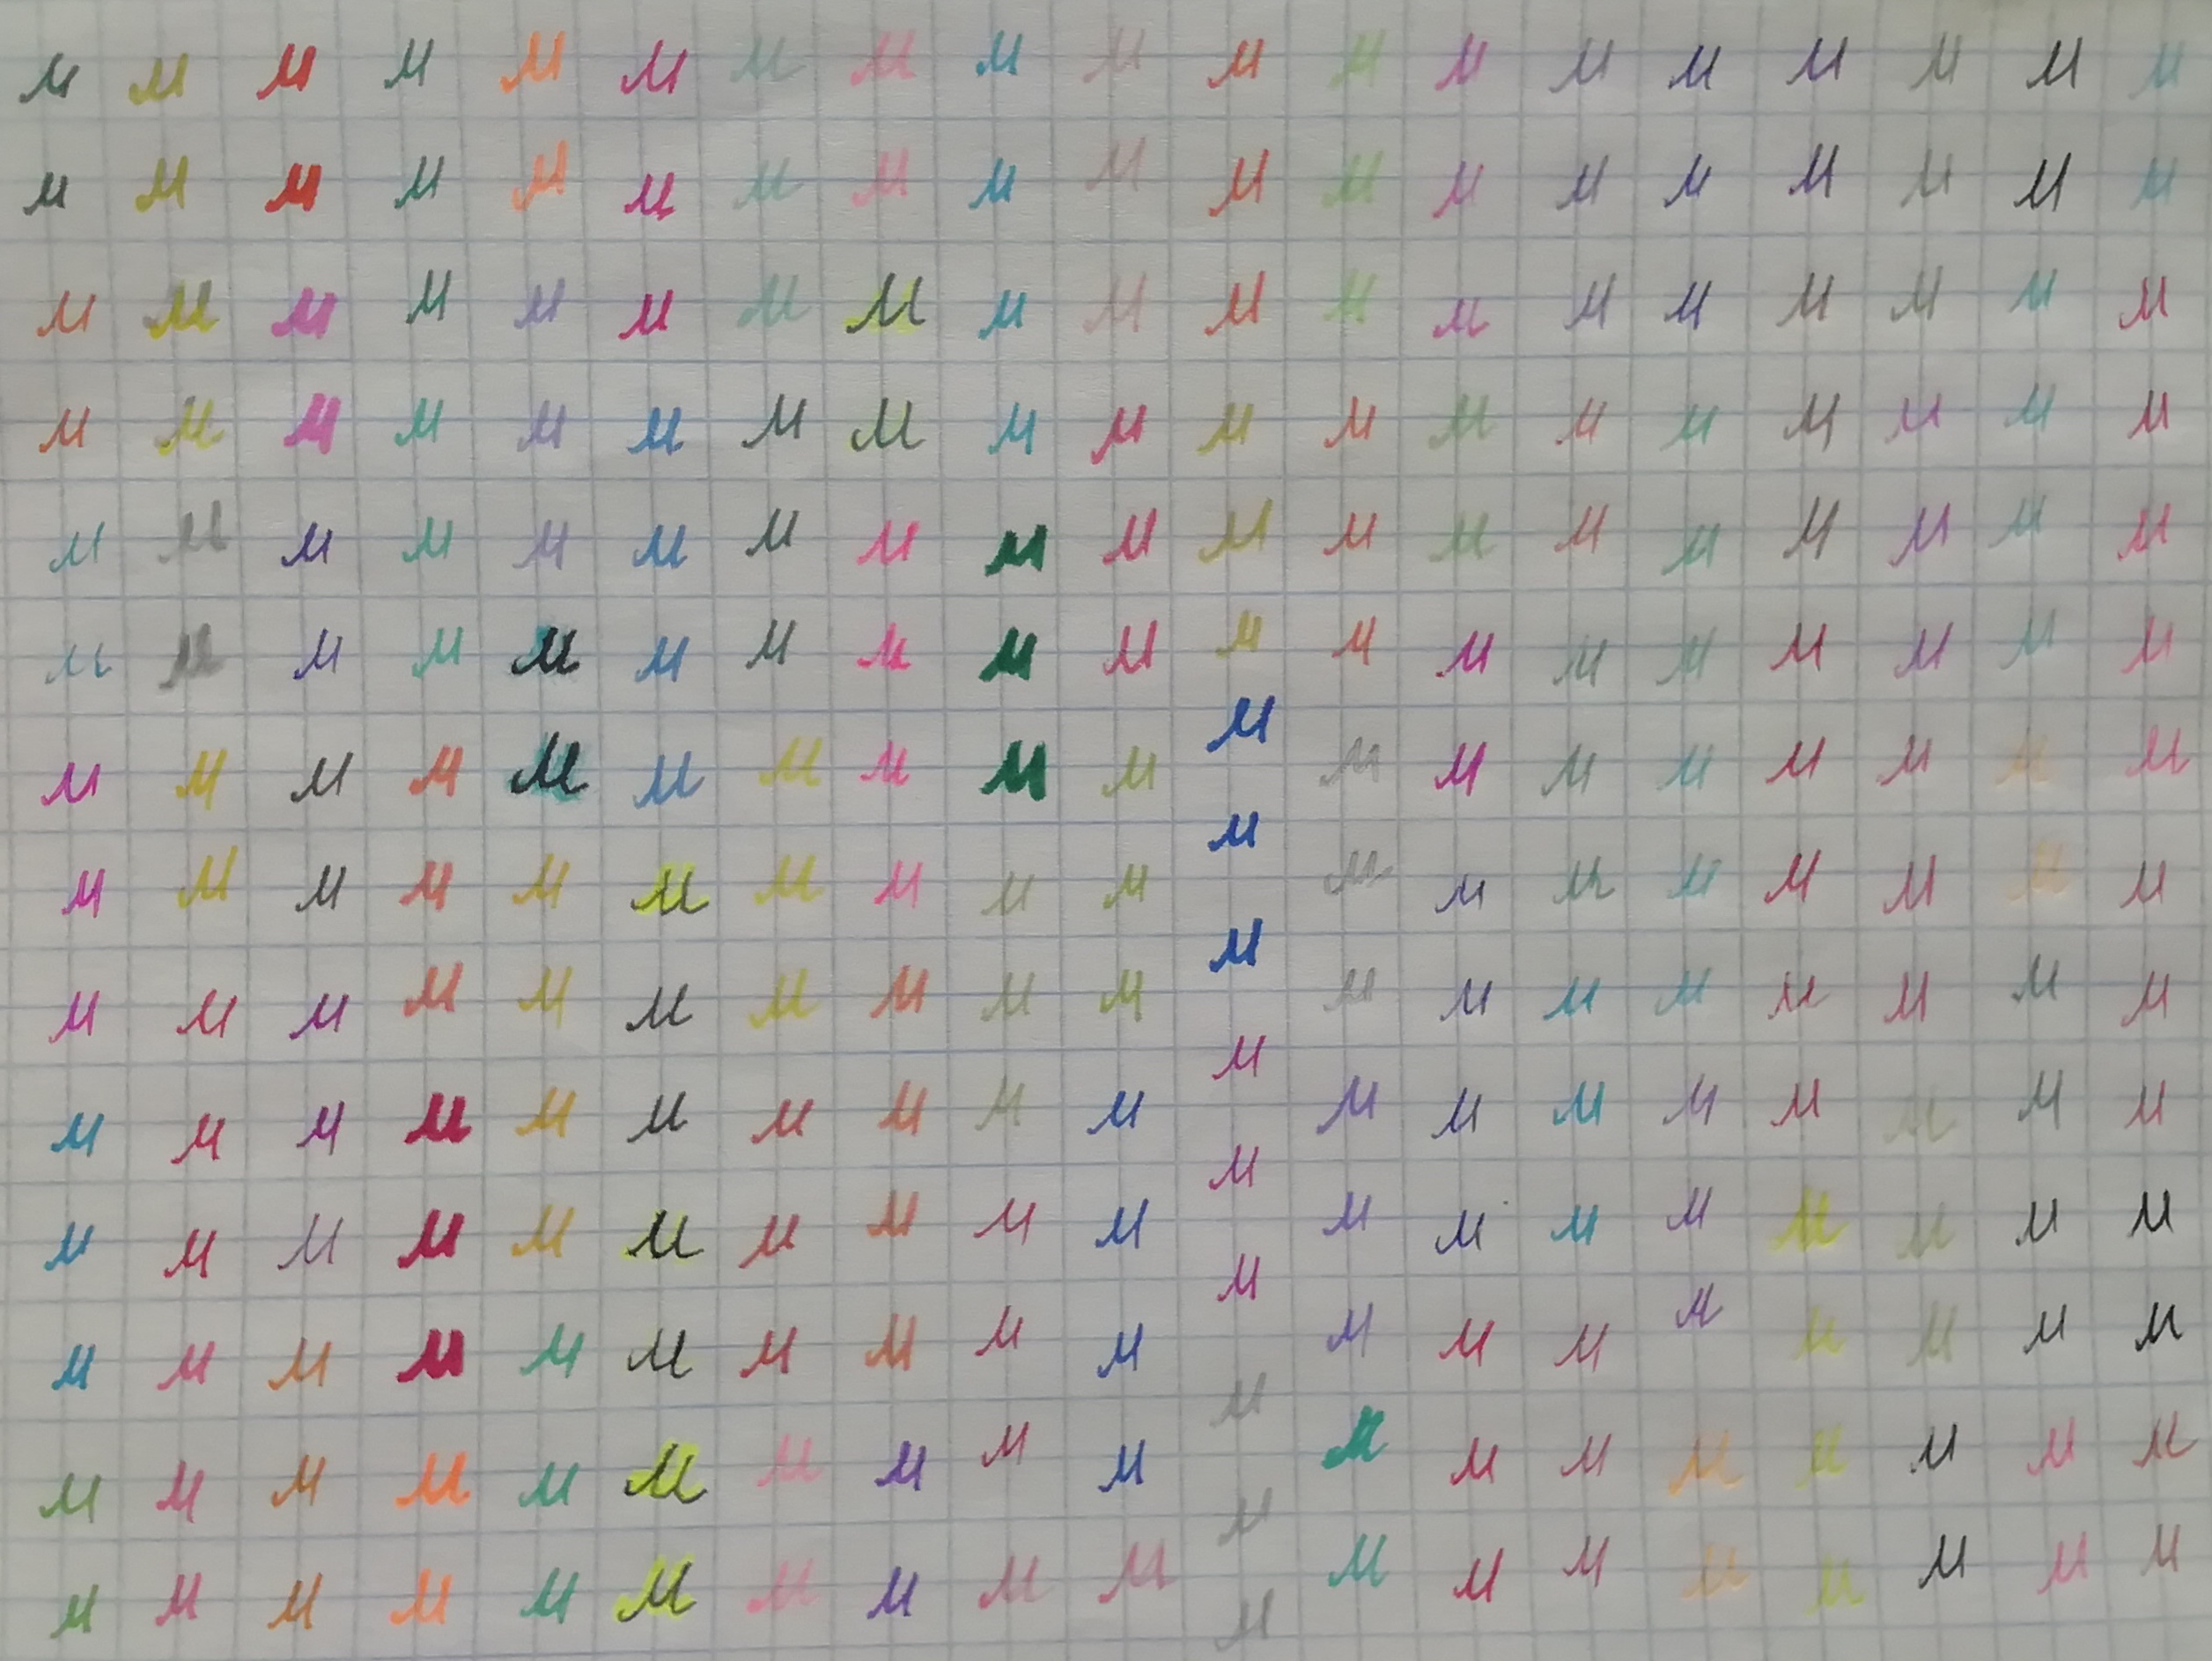 м м м м м м м м м м м м м м м м м м м
м м м м м м м м м м м м м м м м м м м
м м м м м м м м м м м м м м м м м м м
м м м м м м м м м м м м м м м м м м м
м м м м м м м м м м м м м м м м м м м
м м м м м м м м м м м м м м м м м м м
м м м м м м м м м м м м м м м м м м м
м м м м м м м м м м м м м м м м м м м
м м м м м м м м м м м м м м м м м м м
м м м м м м м м м м м м м м м м м м м
м м м м м м м м м м м м м м м м м м м
м м м м м м м м м м м м м м м м м м м
м м м м м м м м м м м м м м м м м м м
м м м м м м м м м м м м м м м м м м м
м